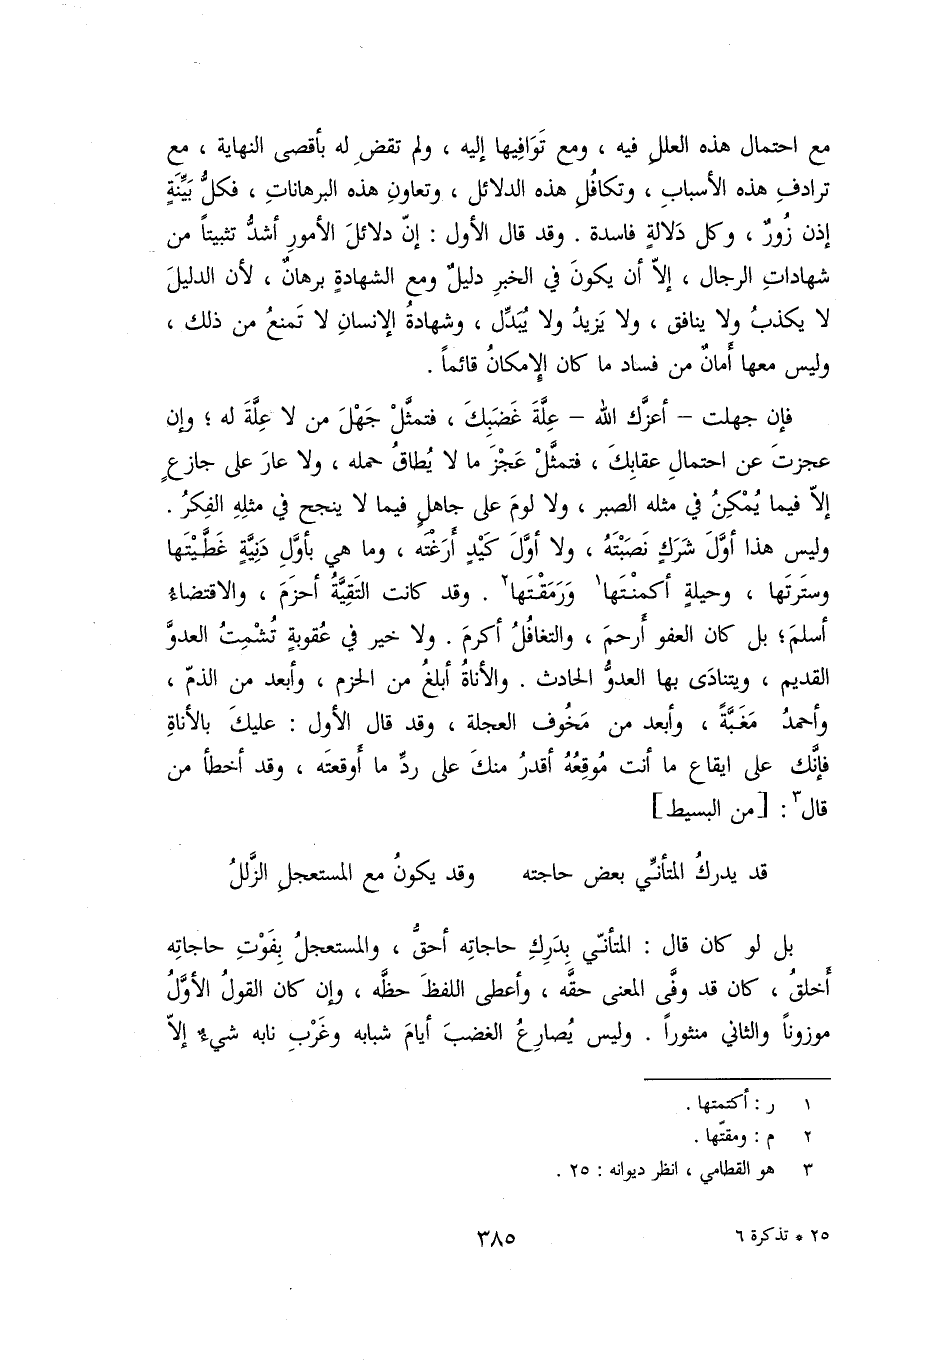 مع احتمال هذه العللِ فيه ، ومع تَوَافِيها إليه ، ولم تقضِ له بأقصى النهاية ، مع
ترادفِ هذه الأسبابِ ، وتكافُلِ هذه الدلائل ، وتعاونِ هذه البرهاناتِ ، فكلُّ بَيِّنَةٍ
إذن زُورٌ ، وكل دَلالةٍ فاسدة . وقد قال الأول : إنّ دلائلَ الأمورِ أشدُّ تثبيتاً من
شهاداتِ الرجال ، إلاّ أن يكونَ في الخبرِ دليلٌ ومع الشهادةِ برهانٌ ، لأن الدليلَ
لا يكذبُ ولا ينافق ، ولا يَزيدُ ولا يُبَدِّل ، وشهادةُ الإنسانِ لا تَمنعُ من ذلك ،
وليس معها أَمانٌ من فساد ما كان الإِمكانُ قائماً .
فإن جهلت – أعزَّك الله – عِلَّةَ غَضَبِكَ ، فتمثَّلْ جَهْلَ من لا عِلَّةَ له ؛ وإن
عجزتَ عن احتمالِ عقابِكَ ، فتمثَّلْ عَجْزَ ما لا يُطاقُ حمله ، ولا عارَ على جازعٍ
إلاّ فيما يُمْكِنُ في مثله الصبر ، ولا لومَ على جاهلٍ فيما لا ينجح في مثلِهِ الفِكرُ .
وليس هذا أوَّلَ شَرَكٍ نَصَبْتَهُ ، ولا أوَّلَ كَيْدٍ أَرَغْتَه ، وما هي بأوَّلِ دَنِيَّةٍ غَطَّيْتَها
وسترَتَها ، وحيلةٍ أكمنْتَها١ وَرَمَقْتَها٢ . وقد كانت التَقِيَّةُ أحزَمَ ، والاقتضاءُ
أسلمَ؛ بل كان العفو أَرحمَ ، والتغافُلُ أكرمَ . ولا خير في عُقوبةٍ تُشْمِتُ العدوَّ
القديم ، ويتنادَى بها العدوُّ الحادث . والأناةُ أبلغُ من الحزم ، وأبعد من الذمّ ،
وأحمدُ مَغَبَّةً ، وأبعد من مَخُوف العجلة ، وقد قال الأول : عليكَ بالأناةِ
فإنَّك على ايقاع ما أنت مُوقِعُهُ أقدرُ منكَ على ردِّ ما أَوقعتَه ، وقد أخطأ من
قال٣ : [من البسيط]
قد يدركُ المتأنِّي بعض حاجته وقد يكونُ مع المستعجلِ الزَّللُ
بل لو كان قال : المتأنّي بِدَرِكِ حاجاتِه أحقُّ ، والمستعجلُ بِفَوْتِ حاجاتِه
أَخلقُ ، كان قد وفَّى المعنى حقَّه ، وأعطى اللفظَ حظَّه ، وإن كان القولُ الأوَّلُ
موزوناً والثاني منثوراً . وليس يُصارِعُ الغضبَ أيامَ شبابه وغَرْبِ نابه شيءٌ إلاّ
١ ر : أكتمتها .
٢ م : ومقتّها .
٣ هو القطامي ، انظر ديوانه : ٢٥ .
٢٥ * تذكرة ٦
٣٨٥